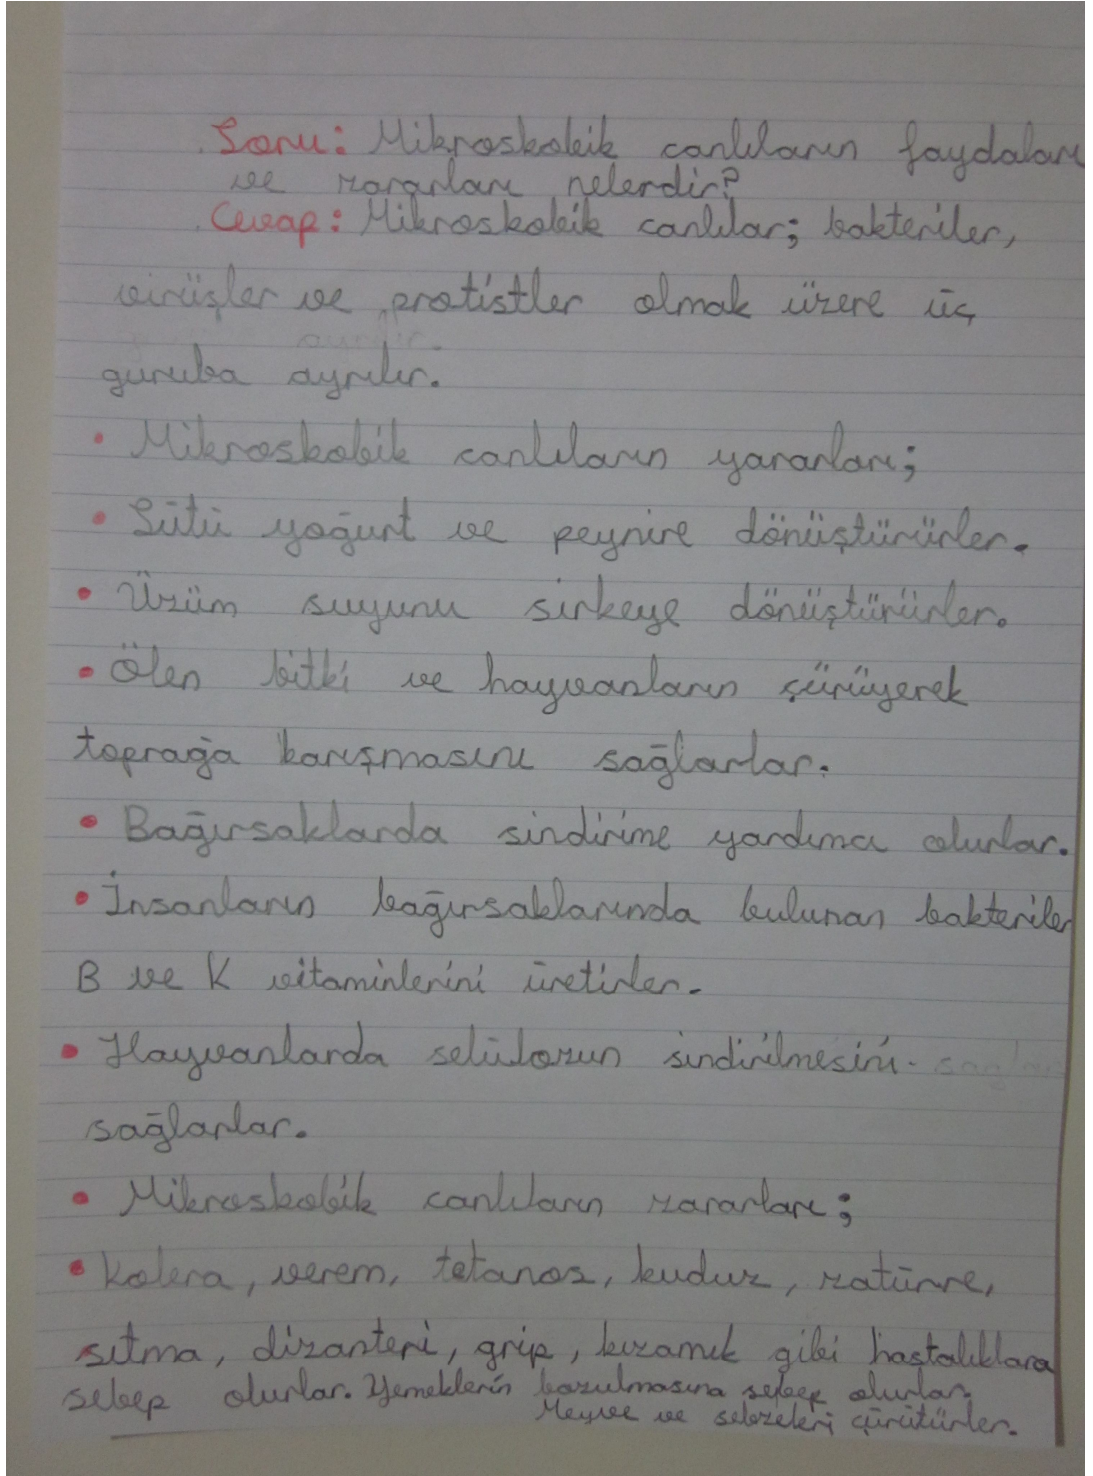 Soru: Mikroskobik canlıların faydaları
ve zararları nelerdir?
Cevap: Mikroskobik canlılar; bakteriler,
virüsler ve protistler olmak üzere üç
guruba ayrılır.
• Mikroskobik canlıların yararları;
• Sütü yoğurt ve peynire dönüştürürler.
• Üzüm suyunu sirkeye dönüştürürler.
• Ölen bitki ve hayvanların çürüyerek
toprağa karışmasını sağlarlar.
• Bağırsaklarda sindirime yardımcı olurlar.
• İnsanların bağırsaklarında bulunan bakteriler
B ve K vitaminlerini üretirler.
• Hayvanlarda selülozun sindirilmesini
sağlarlar.
• Mikroskobik canlıların zararları;
• Kolera, verem, tetanos, kuduz, zatürre,
sıtma, dizanteri, grip, kızamık gibi hastalıklara
sebep olurlar. Yemeklerin bozulmasına sebep olurlar.
Meyve ve sebzeleri çürütürler.